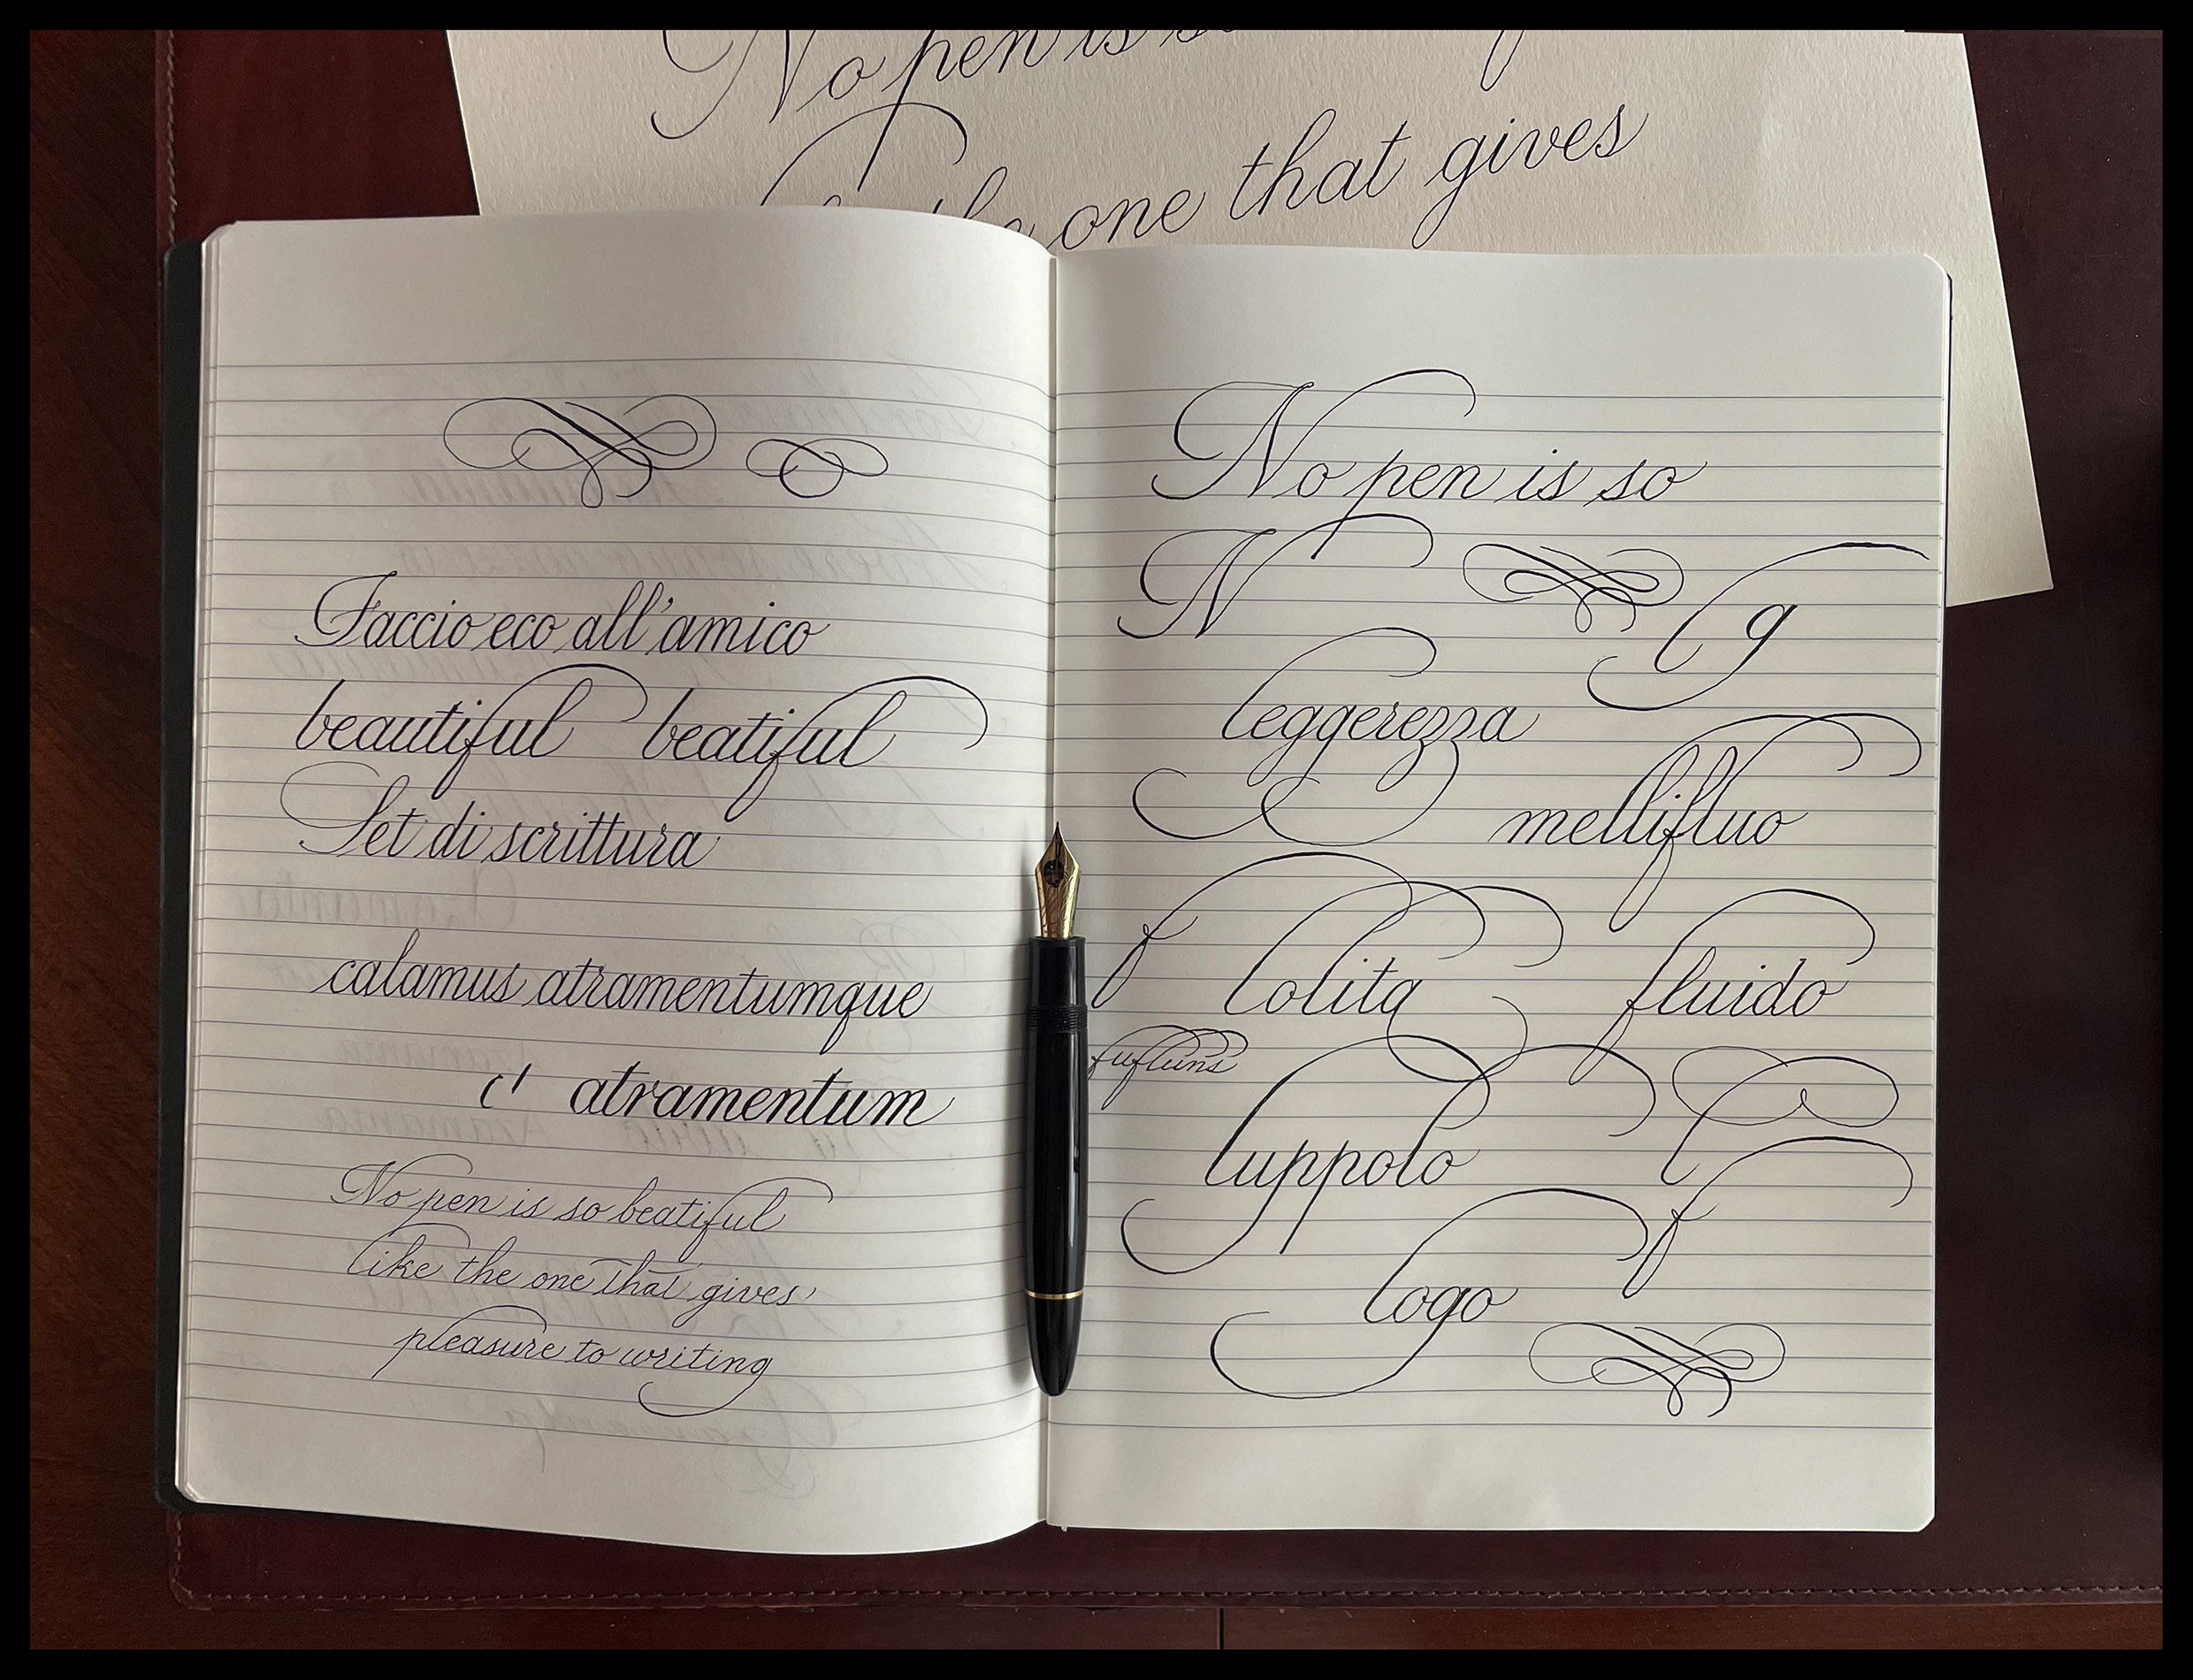 No pen is
the one that gives
Faccio eco all'amico
beautiful beatiful
Set di scrittura
calamus atramentumque
c' atramentum
No pen is so beatiful
like the one that gives
pleasure to writing
No pen is so
N g
leggerezza
mellifluo
f lolita fluido
fufluns
luppolo l
f
logo